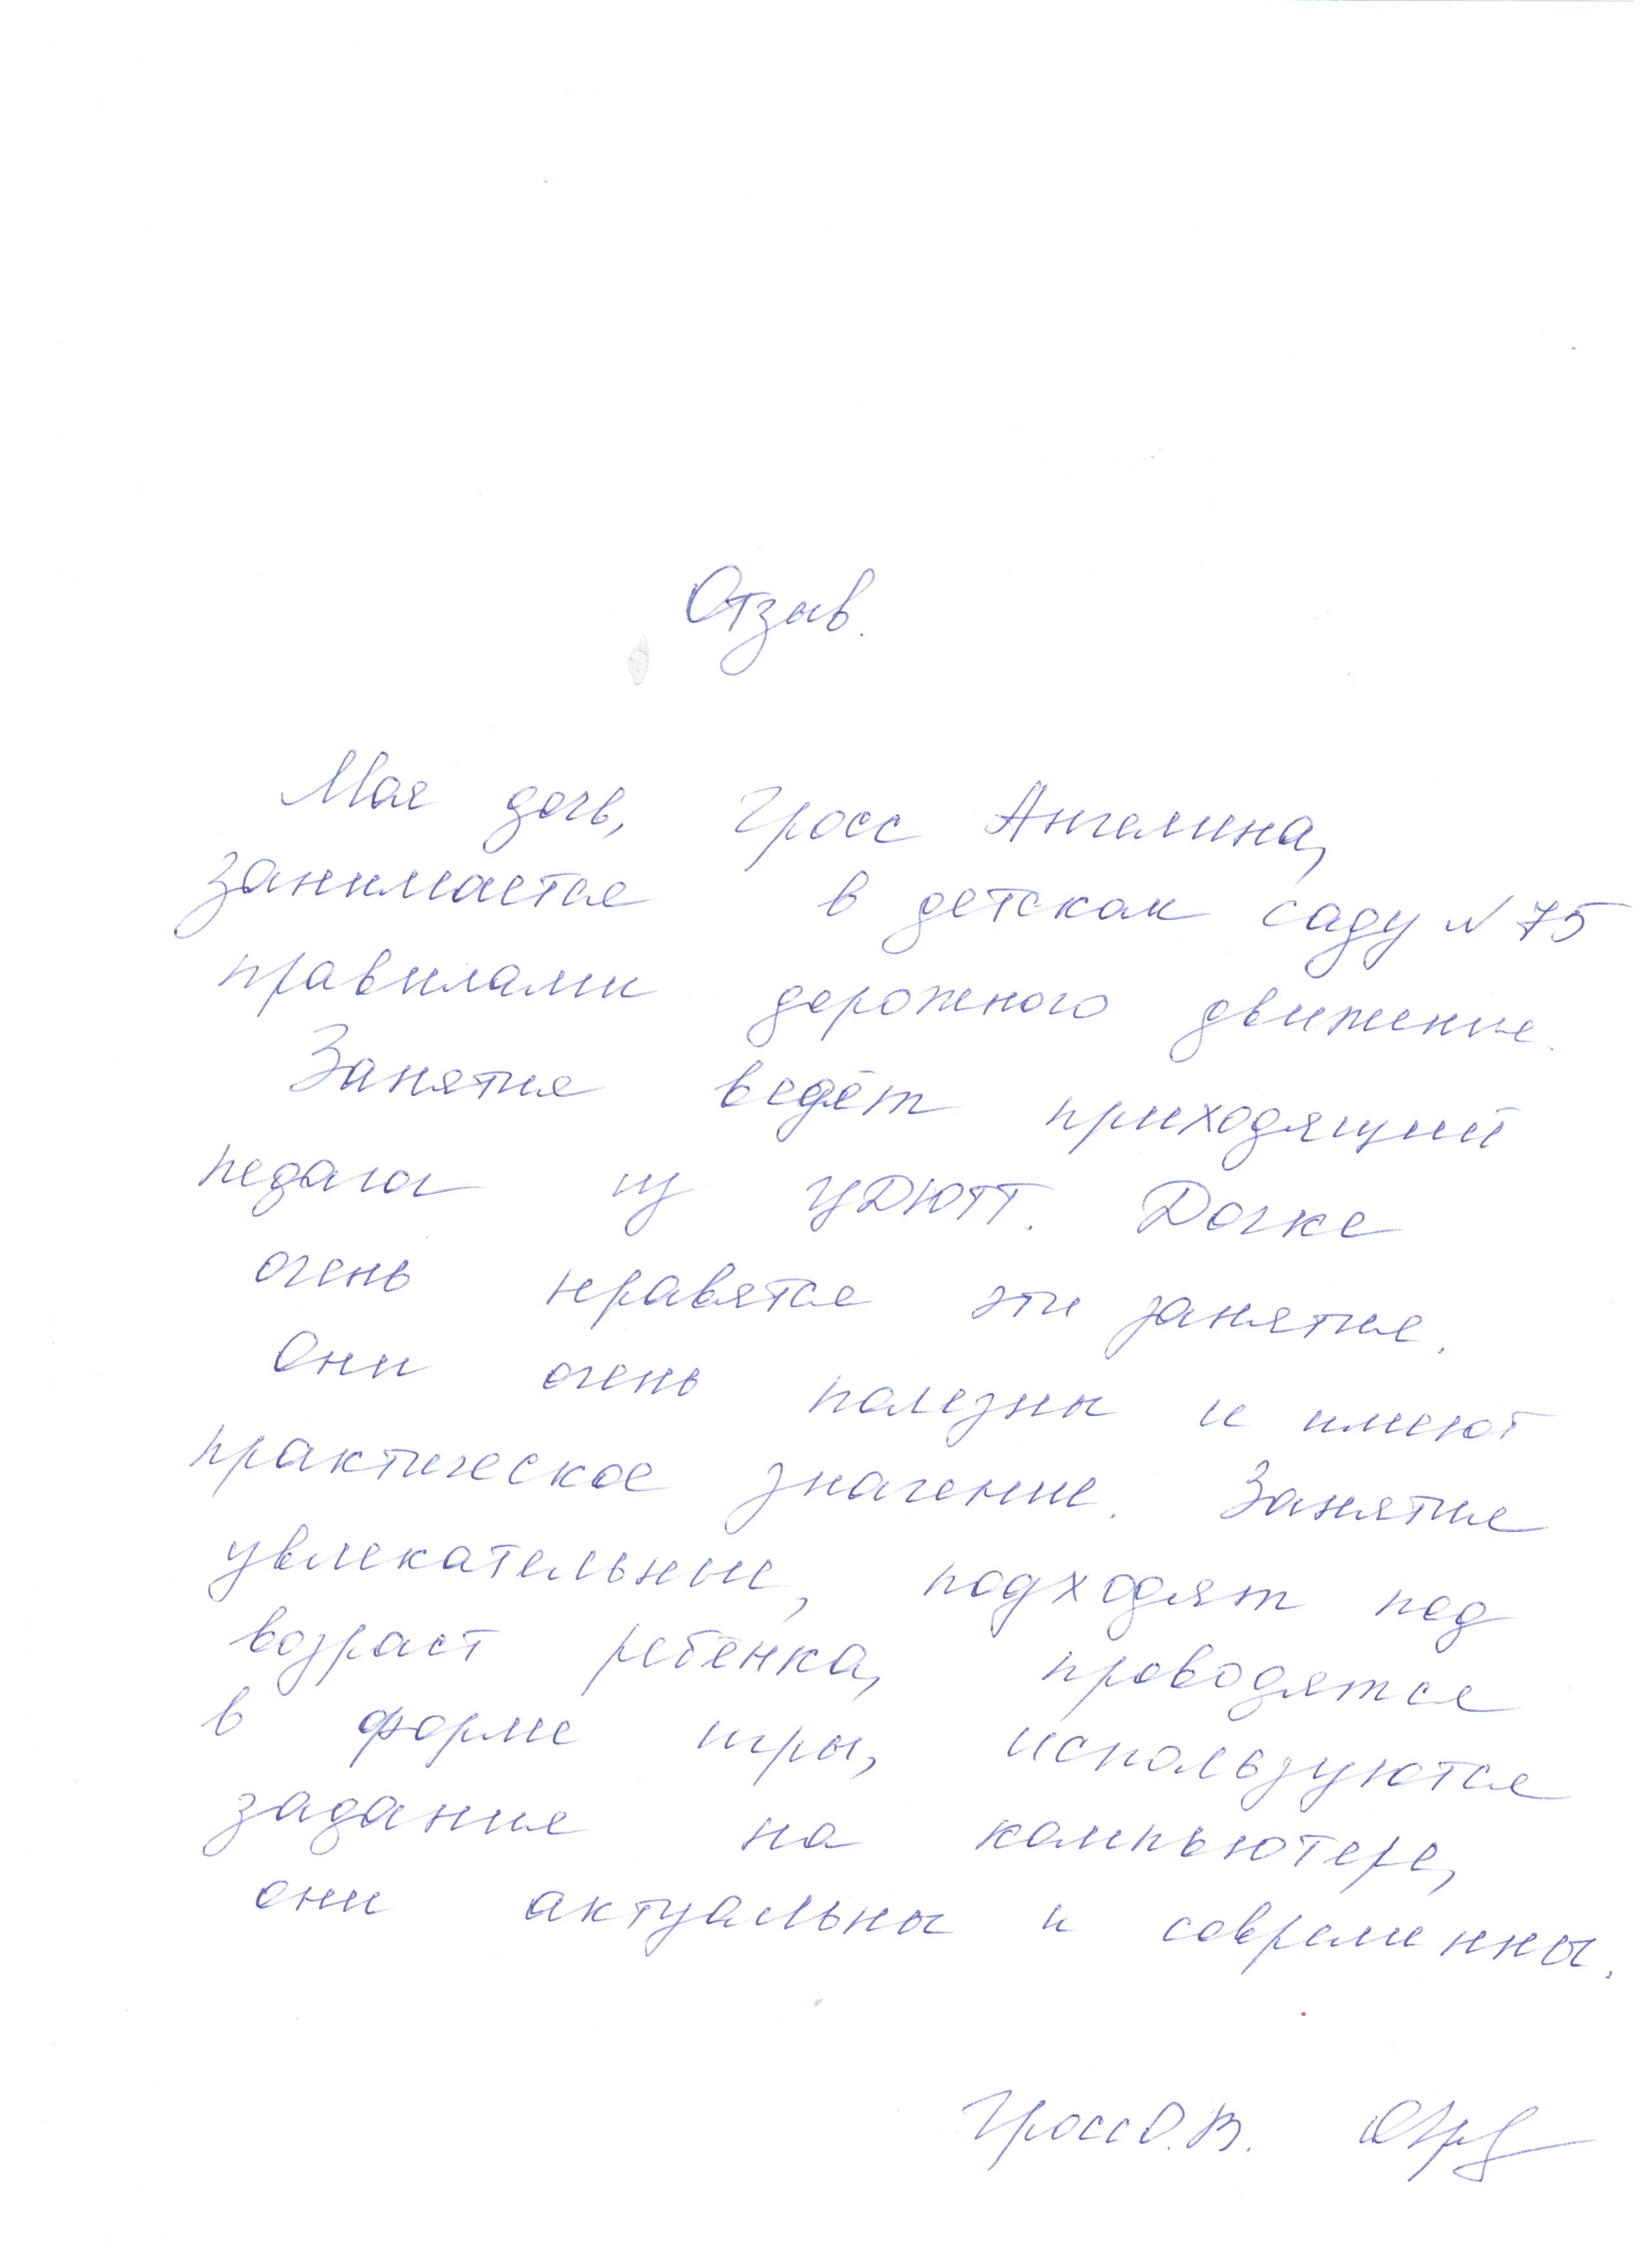 Отзыв.
Моя дочь, Гросс Ангелина,
занимается в детском саду № 75
правилами дорожного движения.
Занятия ведёт приходящий
педагог из ЦДЮТТ. Дочке
очень нравятся эти занятия.
Они очень полезны и имеют
практическое значение. Занятия
увлекательные, подходят под
возраст ребёнка, проводятся
в форме игры, используются
задания на компьютере,
они актуальны и современны.
Гросс О.В.